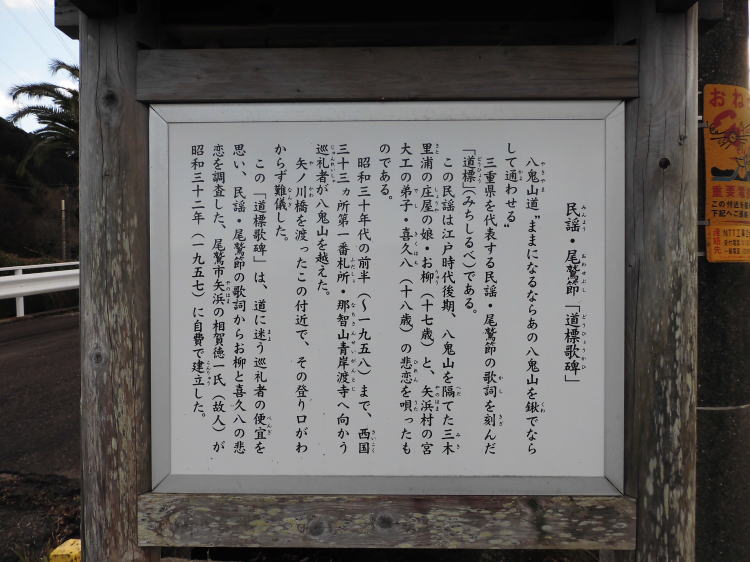 民謡・尾鷲節「道標歌碑」
八鬼山道〝ままになるならあの八鬼山を鍬でなら
して通わせる〟
三重県を代表する民謡・尾鷲節の歌詞を刻んだ
「道標」(みちしるべ)である。
この民謡は江戸時代後期、八鬼山を隔てた三木
里浦の庄屋の娘・お柳(十七歳)と、矢浜村の宮
大工の弟子・喜久八(十八歳)の悲恋を唄ったも
のである。
昭和三十年代の前半(〜一九五八)まで、西国
三十三ヵ所第一番札所・那智山青岸渡寺へ向かう
巡礼者が八鬼山を越えた。
矢ノ川橋を渡ったこの付近で、その登り口がわ
からず難儀した。
この「道標歌碑」は、道に迷う巡礼者の便宜を
思い、民謡・尾鷲節の歌詞からお柳と喜久八の悲
恋を調査した、尾鷲市矢浜の相賀徳一氏(故人)が
昭和三十二年(一九五七)に自費で建立した。
おね
重要電
この付近を
下記へご連
連絡先
NTT工事